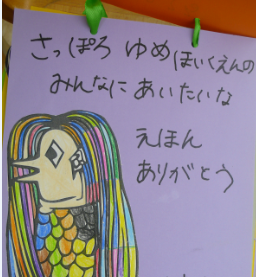 さっぽろ ゆめほいくえんの
みんなに あいたいな
えほん
ありがとう